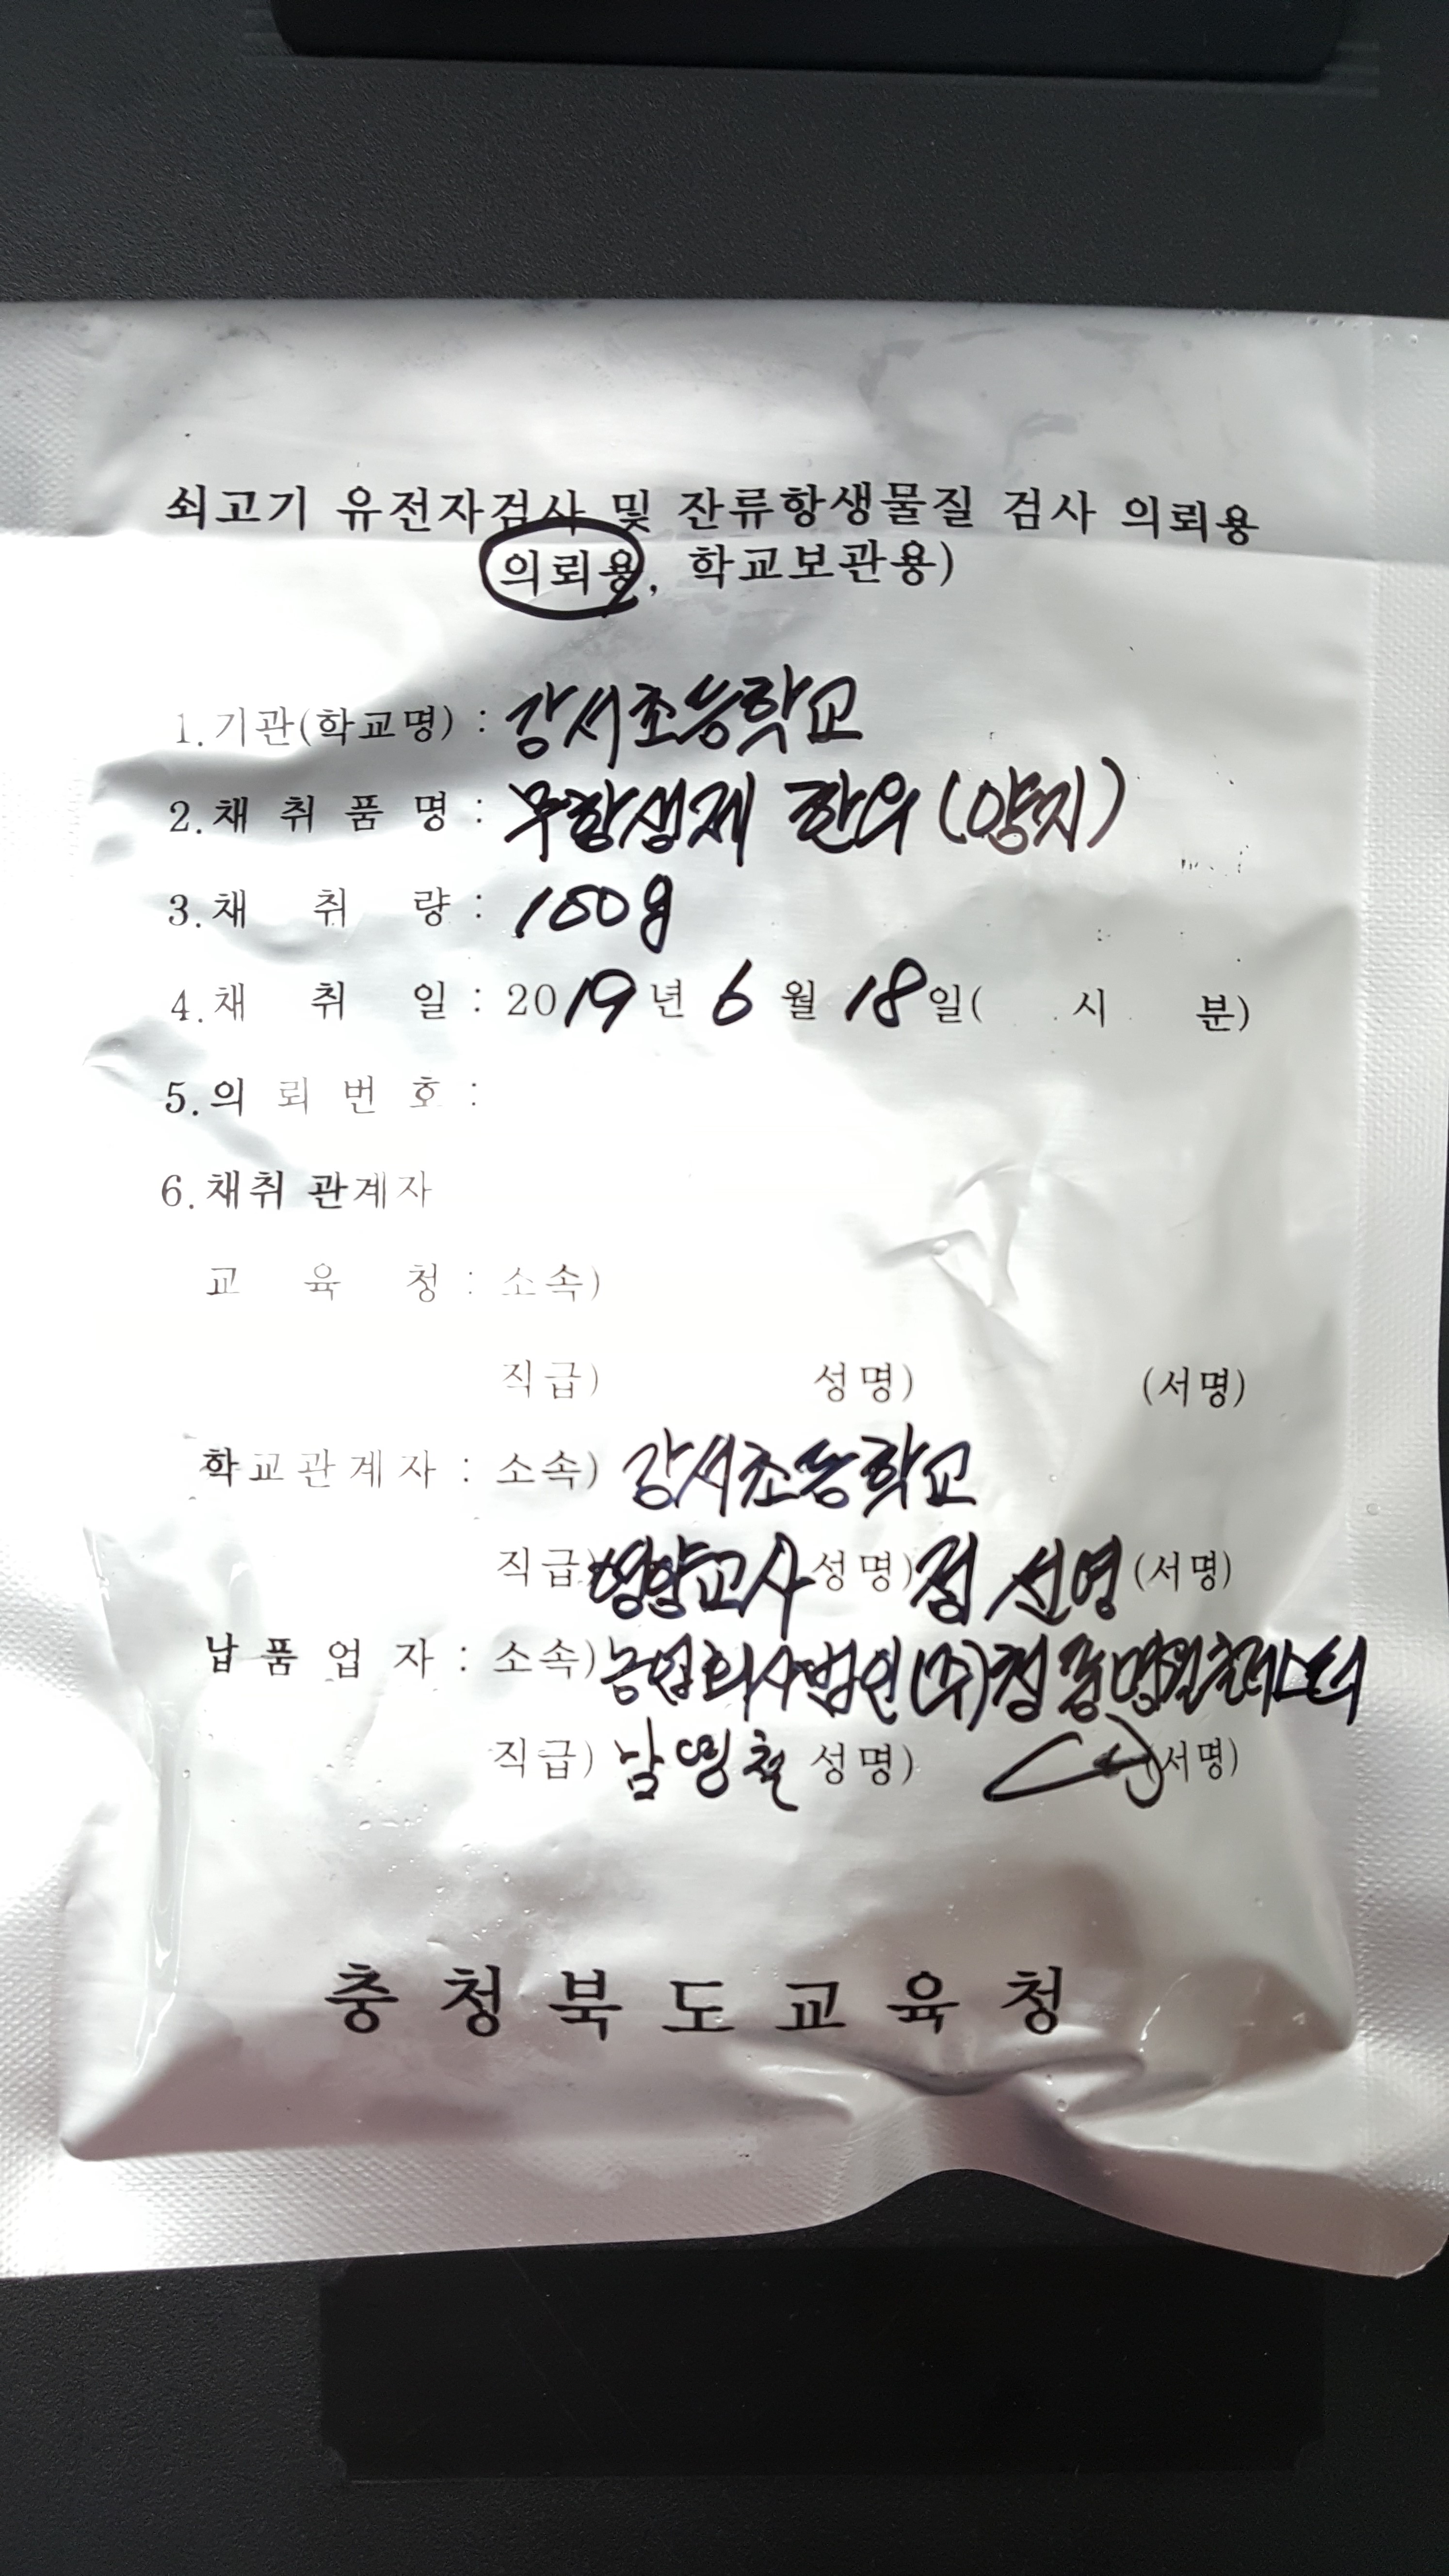 쇠고기 유전자검사 및 잔류항생물질 검사 의뢰용
의뢰용, 학교보관용)
1.기관(학교명) : 강서초등학교
2.채취품명 : 무항생제 한우(양지)
3.채취량 : 100g
4.채취일 : 2019년 6월 18일( 시 분)
5.의뢰번호 :
6.채취관계자
교육청 : 소속)
직급) 성명) (서명)
학교관계자 : 소속) 강서초등학교
직급)영양교사 성명)정선영 (서명)
납품업자 : 소속)농업회사법인(주)청풍명월
직급) 남 철 성명) (서명)
충청북도교육청